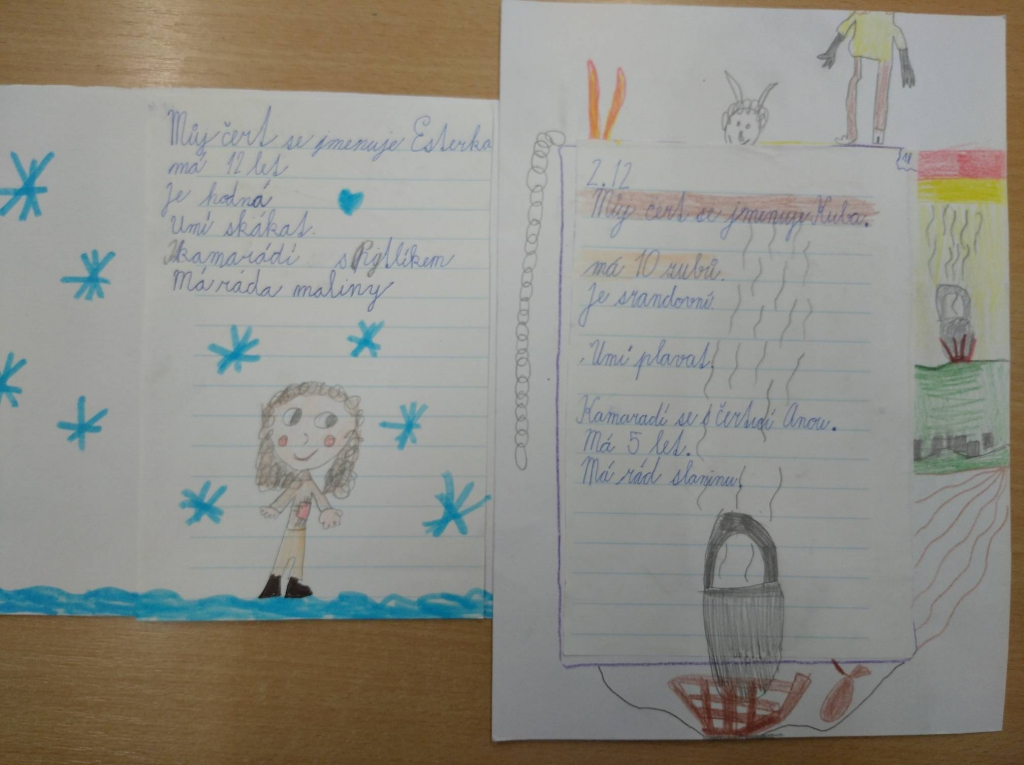 Můj čert se jmenuje Esterka
má 12 let
Je hodná
Umí skákat.
Kamarádí s Pytlíkem
Má ráda maliny
2.12
Můj čert se jmenuje Kuba.
má 10 zubů.
Je srandovní
Umí plavat.
Kamaradí se s čerticí Anou.
Má 5 let.
Má rád slaninu.